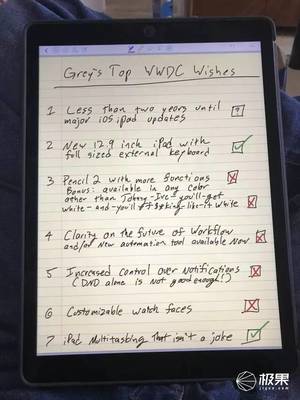 Grey's Top WWDC Wishes
1 Less than two years until
major iOS iPad updates
?
2 New 12.9 inch iPad with
full sized external keyboard
3 Pencil 2 with more functions
Bonus: available in any color
other than Johnny-Ive-you'll-get
white-and-you'll-like-it White
4 Clarity on the future of Workflow
and/or New automation tool available Now
5 Increased control over Notifications
(DND alone is not good enough!)
6 Customizable watch faces
7 iPad Multitasking that isn't a joke
极果